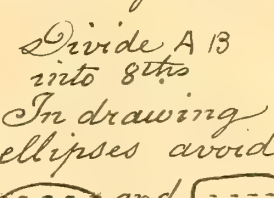 Divide A B
into 8ths
In drawing
ellipses avoid
and